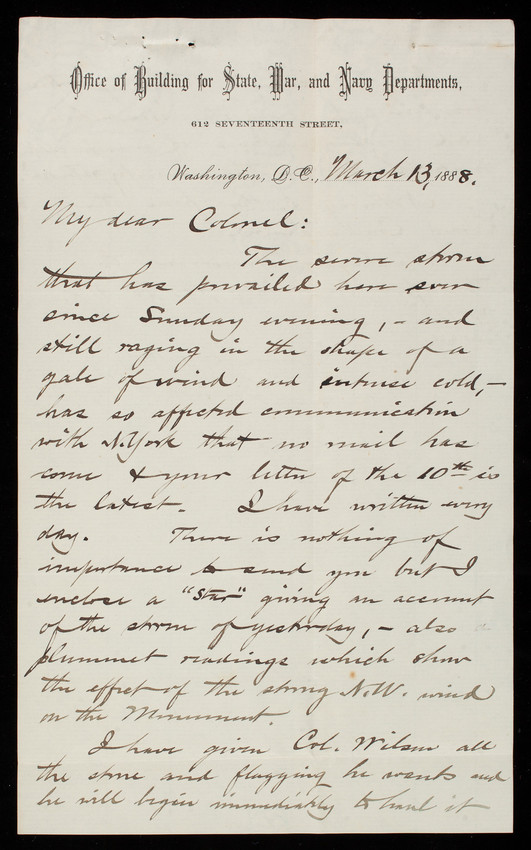 Office of Building for State, War, and Navy Departments,
612 SEVENTEENTH STREET.
Washington, D.C., March 13, 1888.
My dear Colonel:
The severe storm
that has prevailed here ever
since Sunday evening, – and
still raging in the shape of a
gale of wind and intense cold, –
has so affected communication
with N. York that no mail has
come & your letter of the 10th is
the latest. I have written every
day. There is nothing of
importance to send you but I
enclose a "Star" giving an account
of the storm of yesterday, – also
plummet readings which show
the effect of the strong N.W. wind
on the Monument.
I have given Col. Wilson all
the stone and flagging he wants and
he will begin immediately to haul it